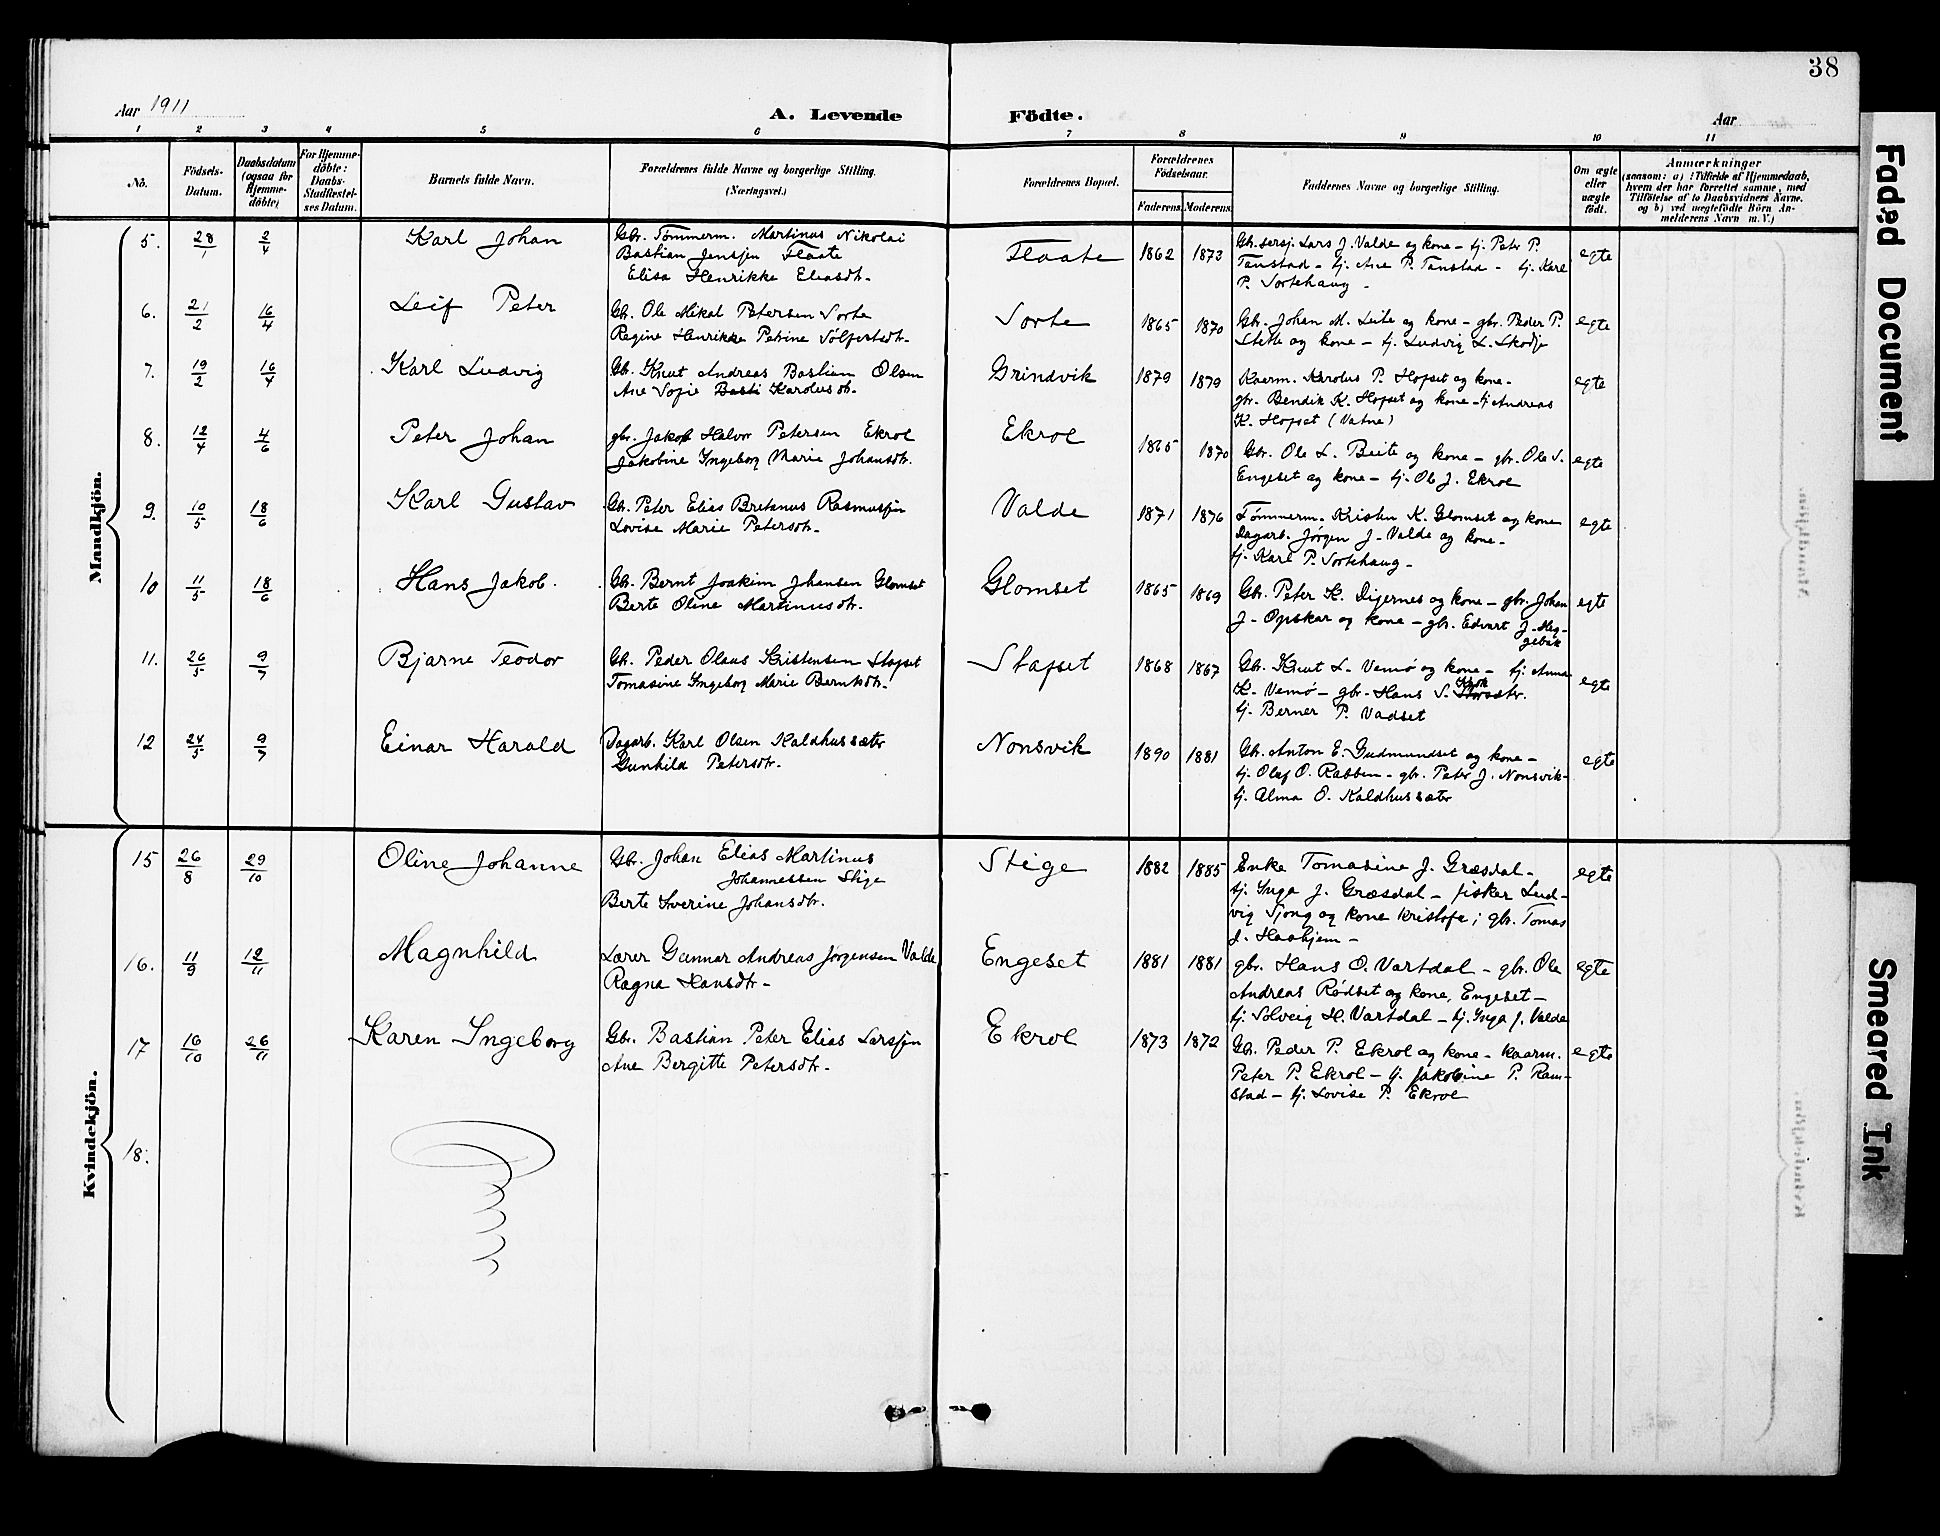 38
Aar 1911
A. Levende Födte.
Aar
1 2 3 4 5 6 7 8 9 10 11
No.
Födsels-Datum.
Daabsdatum (ogsaa for Hjemme-döbte)
For Hjemme-döbte: Daabs-Stadfæstel-ses Datum.
Barnets fulde Navn.
Forældrenes fulde Navne og borgerlige Stilling. (Næringsvei.)
Forældrenes Bopæl.
Forældrenes Födselsaar.
Faderens. Moderens.
Faddernes Navne og borgerlige Stilling.
Om ægte eller uægte födt.
Anmærkninger
(saasom: a) i Tilfælde af Hjemmedaab, hvem der har forrettet samme, med Tilföielse af to Daabsvidners Navne, og b) ved uægtefödte Börn An-melderens Navn m. V.)
Mandkjön.
5. 28/1 2/4 Karl Johan
Gbr. Tömmerm. Martinus Nikolai
Bastian Jensen Flaate
Elisa Henrikke Eliasdtr.
Flaate 1862 1873
Gbr. sersj. Lars J. Valde og kone - tj. Peter P.
Tanstad - tj. Ane P. Tanstad - tj. Karl
P. Sortehaug -
egte
6. 21/2 16/4 Leif Peter
Gbr. Ole Mikal Petersen Sorte
Regine Henrikke Petrine Sölfestdtr.
Sorte 1865 1870
Gbr. Johan M. Leite og kone - gbr. Peder P.
Stette og kone - tj. Ludvig L. Skodje
egte
7. 19/2 16/4 Karl Ludvig
Gb. Knut Andreas Bastian Olsen
Ane Sofie Basti Karolusdtr.
Grindvik 1879 1879
Kaarm. Karolus P. Hofset og kone -
gbr. Bendik K. Hofset og kone - tj. Andreas
K. Hofset (Vatne)
egte
8. 12/4 4/6 Peter Johan
gbr. Jakob Halvor Petersen Ekrol
Jakobine Ingeborg Marie Johansdtr.
Ekrol 1865 1870
Gbr. Ole L. Beite og kone - gbr. Ole S.
Engeset og kone - tj. Ol J. Ekrol
egte
9. 10/5 18/6 Karl Gustav
Gb. Peter Elias Bretanus Rasmussen
Lovise Marie Petersdtr.
Valde 1871 1876
Tømmerm. Kristen K. Glomset og kone
Dagarb. Jørgen J. Valde og kone -
tj. Karl P. Sortehaug -
egte
10 11/5 18/6 Hans Jakob.
Gb. Bernt Joakim Johansen Glomset
Berte Oline Martinusdtr.
Glomset 1865 1869
Gbr. Peter K. Digernes og kone - gbr. Johan
J. Opskar og kone - gbr. Edvart J. Meg-
gebak
egte
11. 26/5 9/7 Bjarne Teodor
Gb. Peder Olaus Kristensen Stafset
Tomasine Ingeborg Marie Berntsdtr.
Stafset 1868 1867
Gb. Knut L. Vemø og kone - tj. Anna
K. Vemø - gbr. Hans S.
tj. Berner P. Vadset
egte
12 24/5 9/7 Einar Harald
Dagarb. Karl Olsen Kaldhussæter
Gunhild Petersdtr.
Nonsvik 1890 1881
Gbr. Anton E. Gudmundset og kone -
tj. Olaf O. Rabben - gbr. Peter J. Nonsvik -
tj. Alma O. Kaldhussæter
egte
Kvindekjön.
15 26/8 29/10 Oline Johanne
Gbr. Johan Elias Martinus
Johannessen Stige
Berte Severine Johansdtr.
Stige 1882 1885
Enke Tomasine J. Græsdal -
tj. Inga J. Græsdal - fisker Lud-
vig Sjong og kone Kristofa; gbr. Tomas
J. Haahjem -
egte
16. 11/9 12/11 Magnhild
Lærer Gunnar Andreas Jørgensen Valde
Ragna Hansdtr -
Engeset 1881 1881
gbr. Hans O. Vartdal - gbr. Ole
Andreas Rødset og kone, Engeset -
tj Solveig H. Vartdal - tj. Inga J. Valde
egte
17 16/10 26/11 Karen Ingeborg
Gbr. Bastian Peter Elias Larssen
Ane Bergitte Petersdtr.
Ekrol 1873 1872
Gb. Peder P. Ekrol og kone - kaarm.
Peter P. Ekrol - tj. Jakobine P. Ram-
stad - tj. Lovise P. Ekrol
egte
18.
Faded Document
Smeared Ink